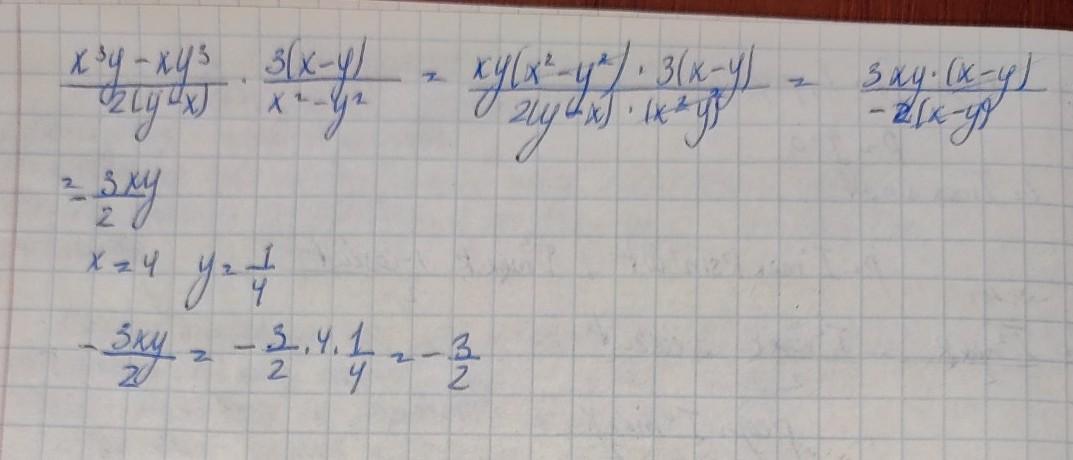 (x³y − xy³)/(2(y−x)) · (3(x−y))/(x²−y²) = (xy(x²−y²) · 3(x−y))/(2(y−x) · (x²−y²)) = (3xy·(x−y))/(−2(x−y))
= −3xy/2
x = 4 y = 1/4
−3xy/2 = −3/2 · 4 · 1/4 = −3/2